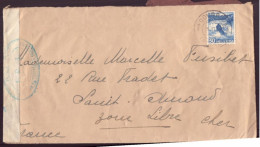 Mademoiselle Marcelle Fusibet
22 Rue Fradet
Saint Amand
zone Libre Cher
France